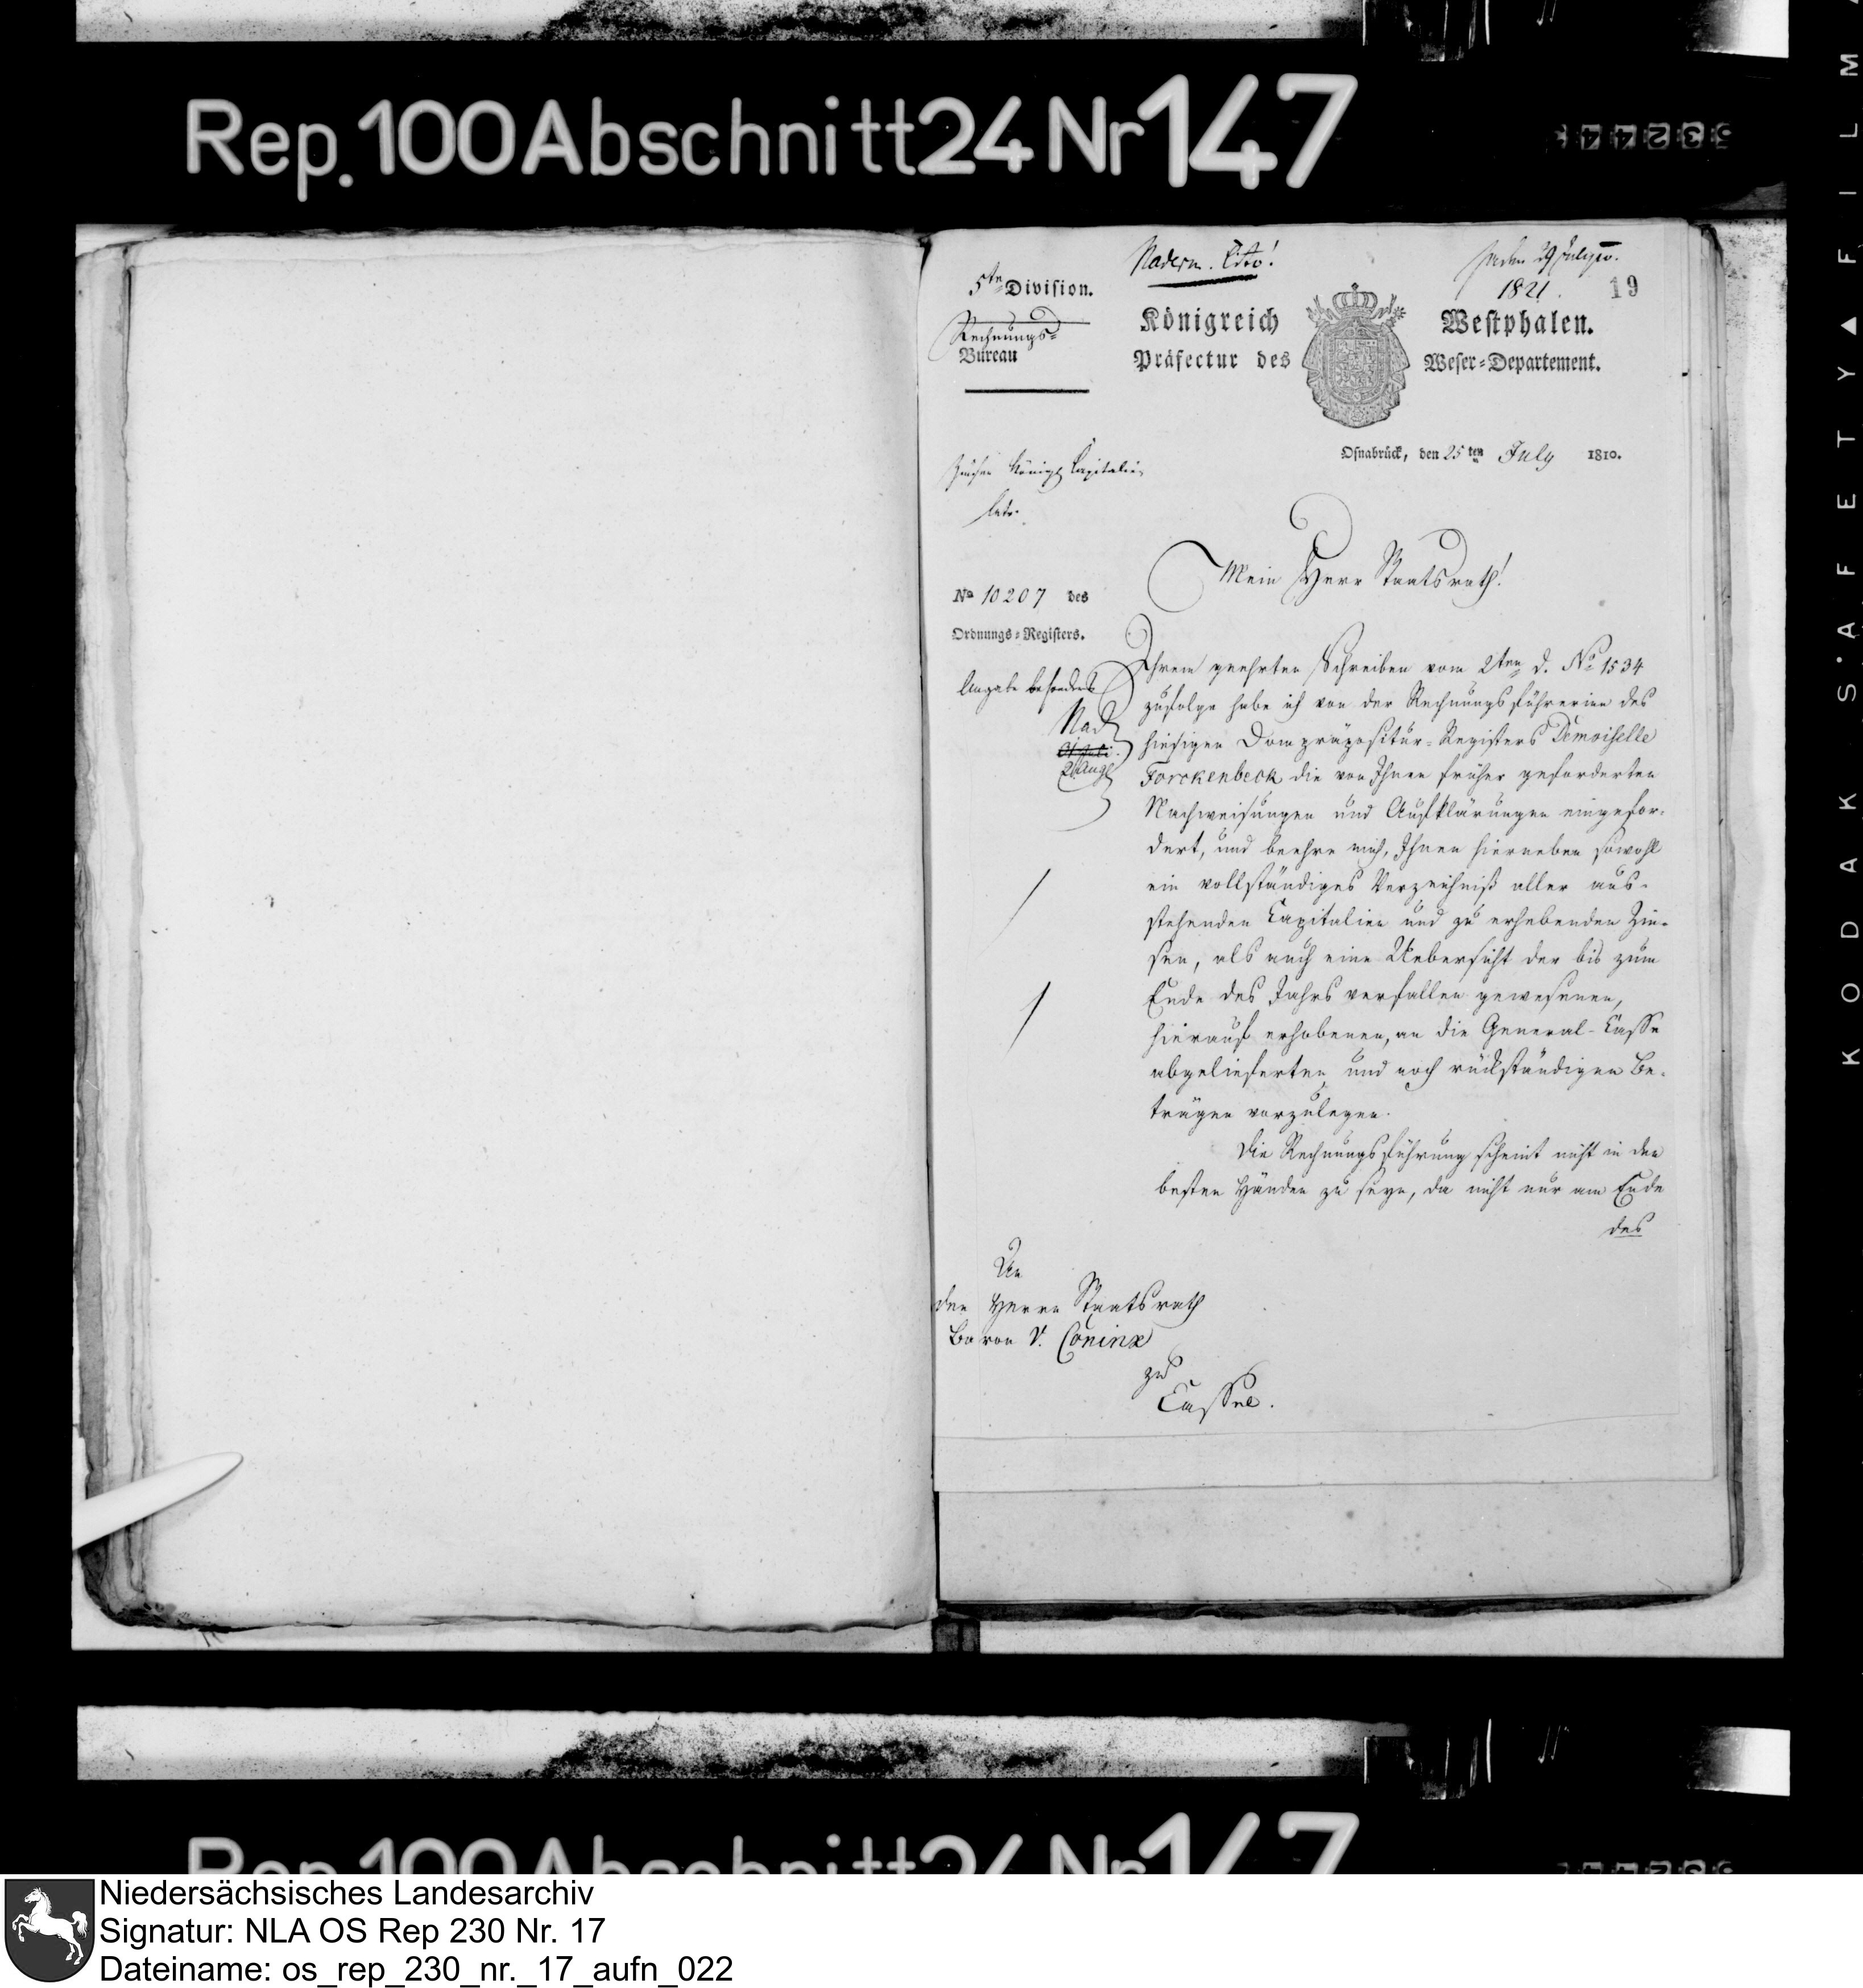 Rep. 100 Abschnitt 24 Nr 147
53244
KODAK SAFETY FILM
den 29 July
1821.
19
5te Division.
Rechnungs=
Bureau
Königreich Westphalen.
Präfectur des Weser=Departement.
Osnabrück, den 25ten July 1810.
Capitalien
betr.
Mein Herr Staatsrath!
No 10207 des
Ordnungs=Registers.
Ihrem geehrten Schreiben vom 2ten d. No 1534
zufolge habe ich von der Rechnungsführerinn des
hiesigen Dompräpositur=Registers Demoiselle
Forckenbeck die von Ihnen früher geforderten
Nachweisungen und Aufklärungen eingefor=
dert, und beehre mich, Ihnen hierneben sowohl
ein vollständiges Verzeichniß aller aus=
stehenden Capitalien und zu erhebenden Zin=
sen, als auch eine Uebersicht der bis zum
Ende des Jahrs verfallen gewesenen,
hierauf erhobenen, an die General=Casse
abgelieferten und noch rückständigen Be=
trägen vorzulegen.
Die Rechnungsführung scheint nicht in den
besten Händen zu seyn, da nicht nur am Ende
des
Angabe besonders
2 Aug
An
den Herrn Staatsrath
Baron v. Coninx
zu
Cassel.
Rep. 100 Abschnitt 24 Nr 147
Niedersächsisches Landesarchiv
Signatur: NLA OS Rep 230 Nr. 17
Dateiname: os_rep_230_nr._17_aufn_022